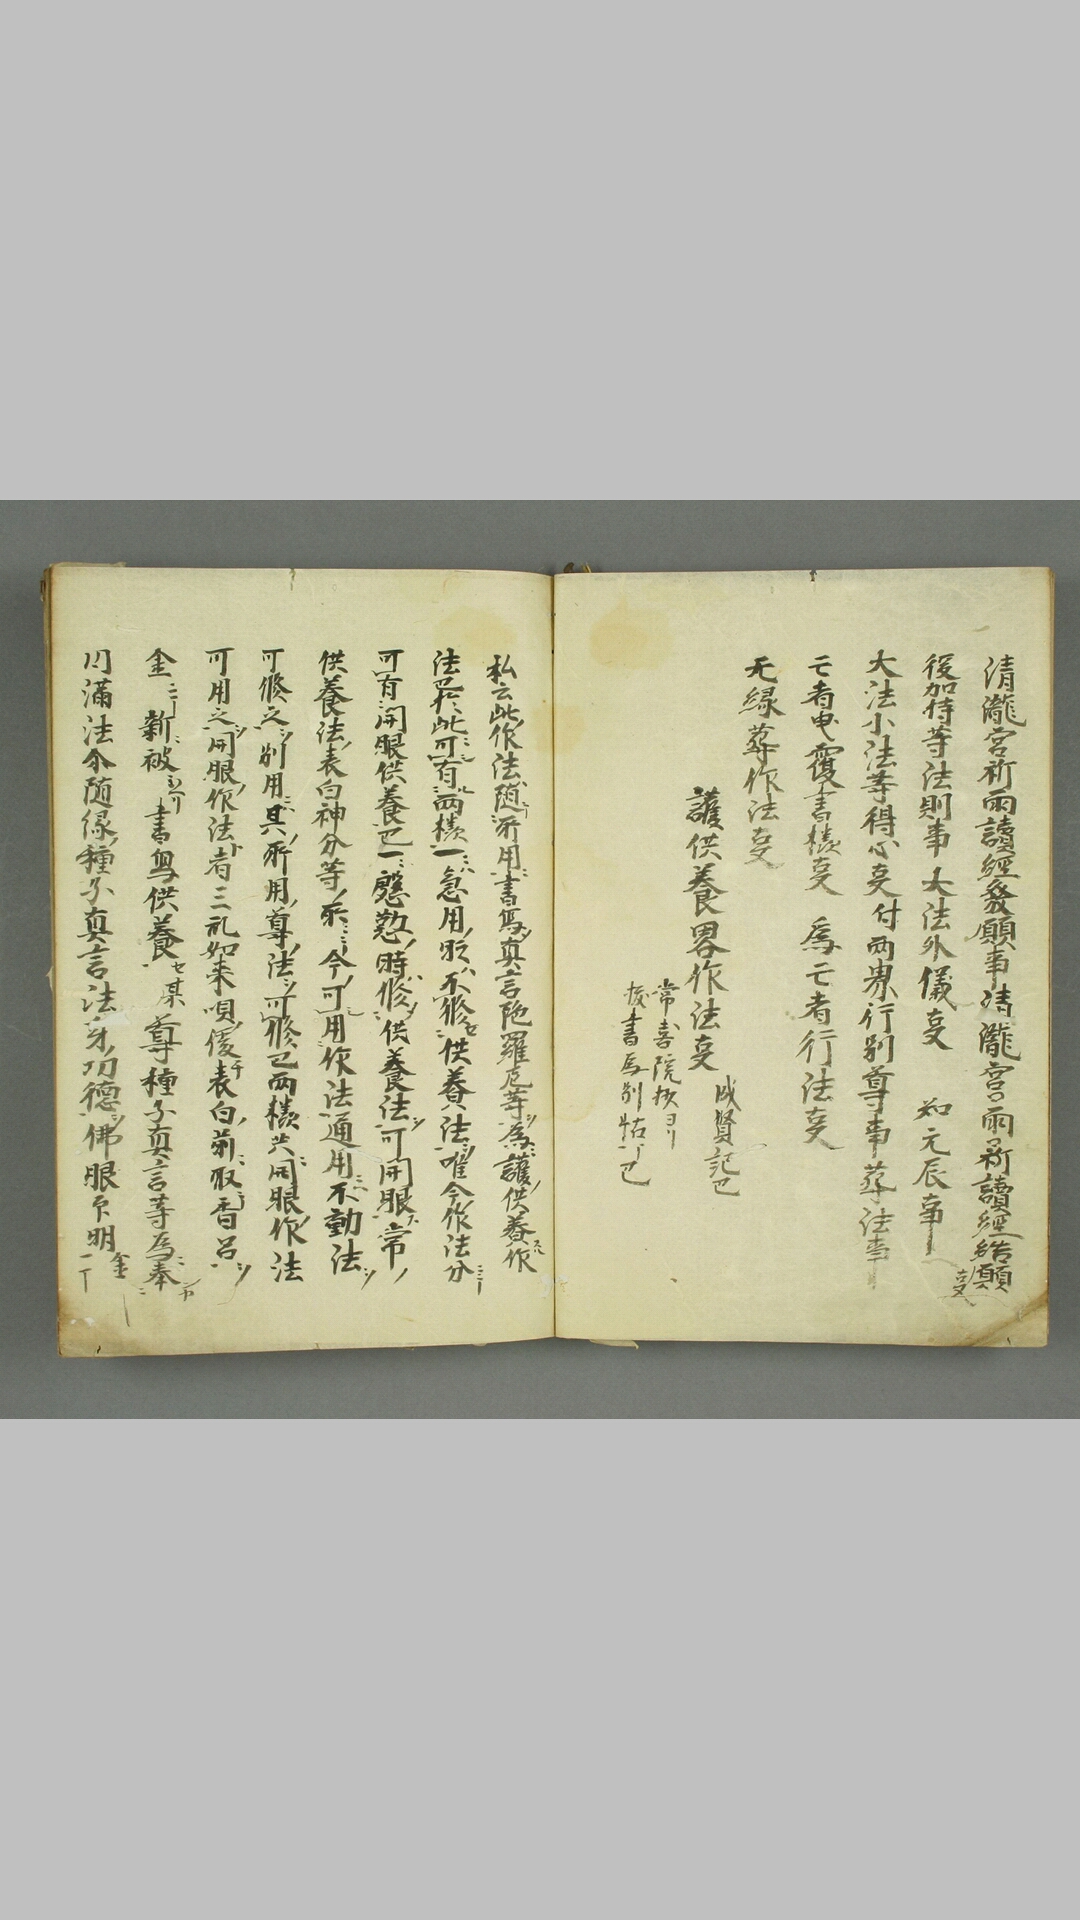 清瀧宮祈雨讀經發願事清瀧宮雨祈讀經結願
事
後加持等法則事 大法外儀事 知元辰事
大法小法等得心事付両界行別尊事 葬法事
亡者曳覆書樣事 為亡者行法事
无縁葬作法事
護供養畧作法事 成賢記已
常喜院抄ヨリ
後書為別帖了已
私云此作法随所用書寫真言陀羅尼等為護供養作
法 此可有両樣一急用時不修供養法唯令作法分
可有開眼供養已一慇懃時修供養法可開眼常
供養法表白神分等 今可用作法通用不動法
可修之別用其所用尊法可修已両樣共開眼作法
可用之開眼作法者三礼如来唄 表白前取香呂
金二丁 新被 書寫供養セ某尊種子真言等為奉
円滿法令随縁種子真言法身功德佛眼印明 金一丁